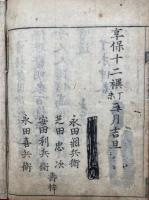 享保十二稘丁未五月吉旦
永田調兵衛
芝田忠次
安田利兵衛
壽梓
永田喜兵衛